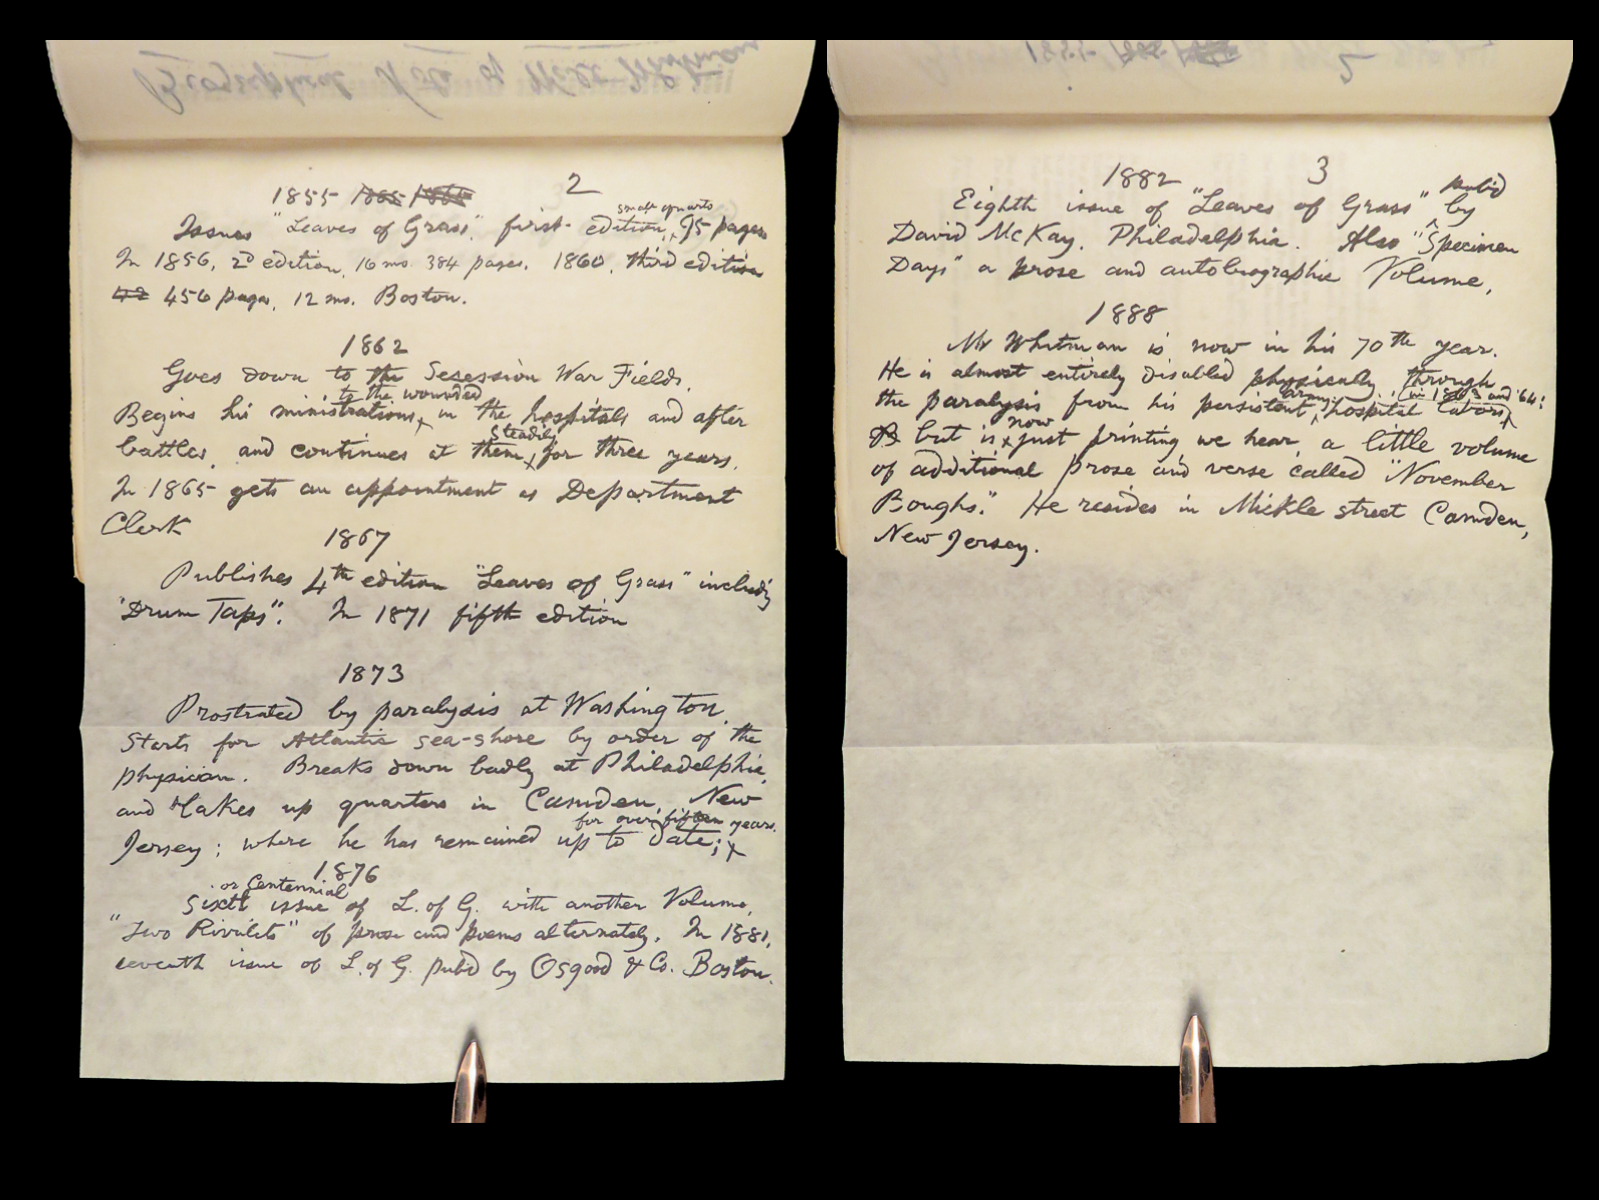 Biographical Note of Walt Whitman
1855 1865 1866 2
small quarto
Issues "Leaves of Grass," first edition, 95 pages
In 1856, 2d edition, 16 mo. 384 pages. 1860, third edition
42 456 pages, 12 mo. Boston.
1862
Goes down to the Secession War Fields.
to the wounded
Begins his ministrations, in the hospitals and after
steadily
battles, and continues at them, for three years.
In 1865 gets an appointment as Department
Clerk
1867
Publishes 4th edition "Leaves of Grass" includ'g
"Drum Taps". In 1871 fifth edition
1873
Prostrated by paralysis at Washington.
Starts for Atlantic sea-shore by order of the
physician. Breaks down badly at Philadelphia,
and takes up quarters in Camden, New
for over fifteen years.
Jersey; where he has remained up to date;
1876
or Centennial
Sixth issue of L. of G. with another Volume,
"Two Rivulets" of prose and poems alternately. In 1881,
seventh issue of L. of G. pub'd by Osgood & Co. Boston.
1855 1865
2
1882 3
pub'd
Eighth issue of "Leaves of Grass" by
David McKay, Philadelphia. Also "Specimen
Days" a prose and autobiographic Volume,
1888
Mr Whitman is now in his 70th year.
He is almost entirely disabled physically, through
army (in 1863 and '64)
the paralysis from his persistent, hospital labors,
now
B but is just printing we hear, a little volume
of additional prose and verse called "November
Boughs." He resides in Mickle street Camden,
New Jersey.